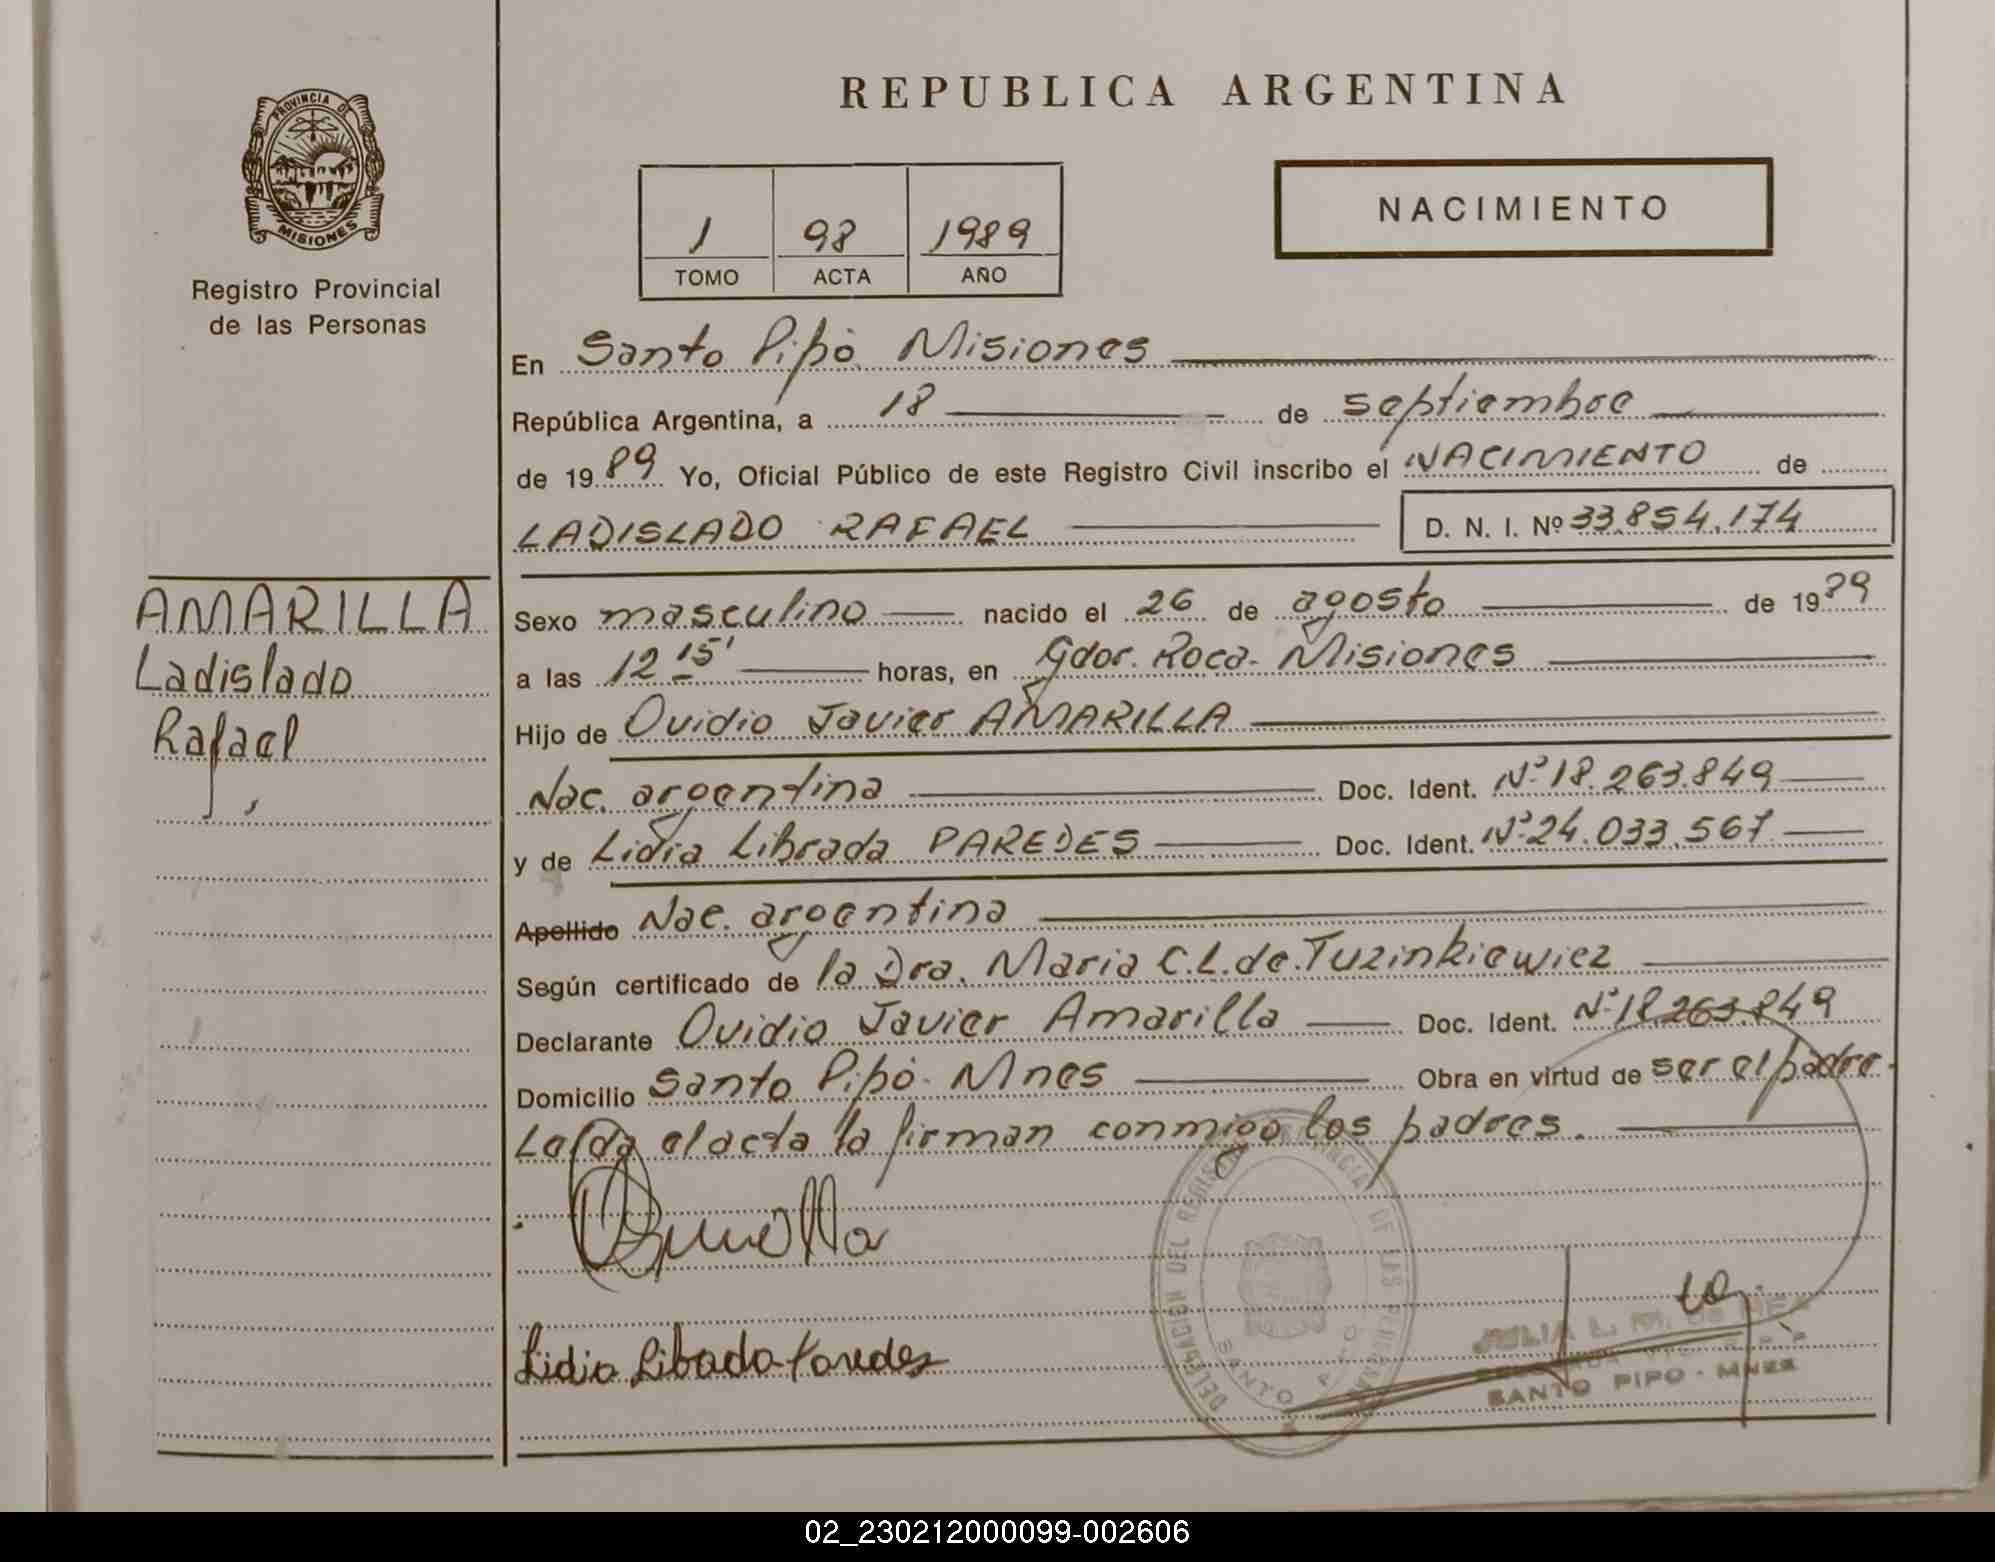 REPUBLICA ARGENTINA
PROVINCIA DE
MISIONES
Registro Provincial
de las Personas
1 98 1989
TOMO ACTA AÑO
NACIMIENTO
En Santo Pipó Misiones
República Argentina, a 18 de septiembre
de 1989 Yo, Oficial Público de este Registro Civil inscribo el NACIMIENTO de
LADISLADO RAFAEL D. N. I. Nº 33.854.174
AMARILLA
Ladislado
Rafael
Sexo masculino nacido el 26 de agosto de 1989
a las 12 15' horas, en Gdor. Roca - Misiones
Hijo de Ovidio Javier AMARILLA
Nac. argentina Doc. Ident. Nº 18.263.849
y de Lidia Librada PAREDES Doc. Ident. Nº 24.033.567
Apellido Nac. argentina
Según certificado de la Dra. Maria C.L. de Tuzinkiewicz
Declarante Ovidio Javier Amarilla Doc. Ident. Nº 18.263.849
Domicilio Santo Pipó - Mnes Obra en virtud de ser el padre.
Leída el acta la firman conmigo los padres.
Lidia Librada Paredes
DELEGACION DEL REGISTRO PROVINCIAL DE LAS PERSONAS
SANTO PIPO
JULIA L. M. DE
SANTO PIPO - MNES
02_230212000099-002606